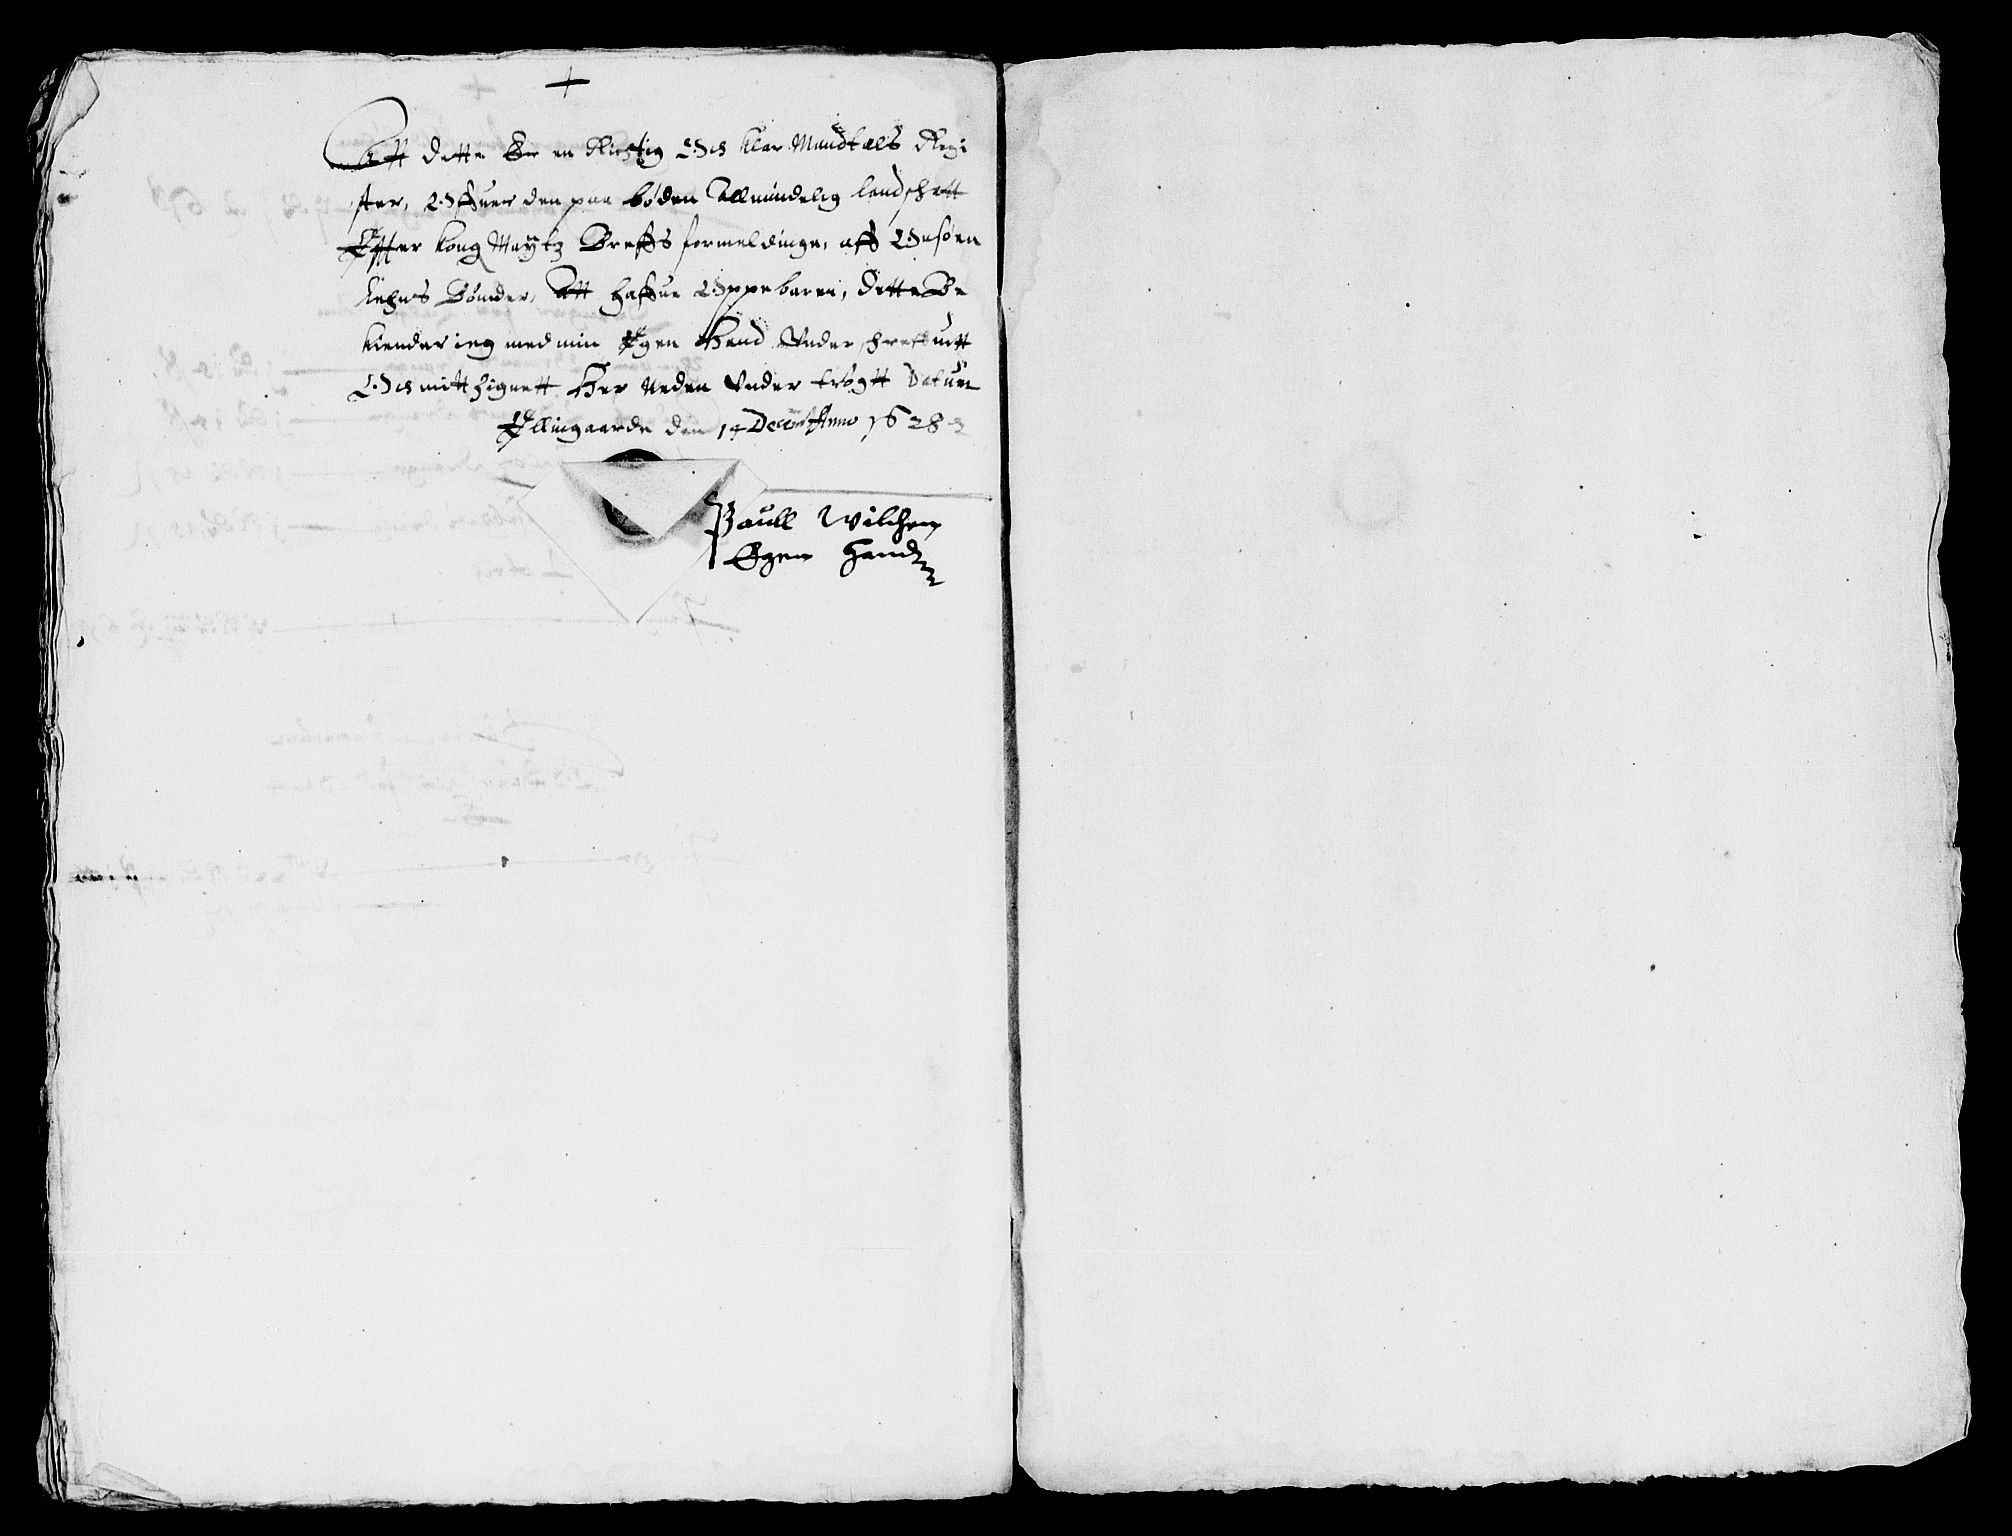 +
Att dette Er en Richtig Och klar Mandtals Regi
ster, Offuer den paa böden Allmindelig landschatt
Effter kong Maytz Breffs formeldinge, aff Onsöen
Lehns Bönder, Att haffue Oppebaren, dette Be
kiender ieg med min Egen Hand Underschreffuitt
Och mitt Zignett Her neden Under tröght Datum
Ellingaarde den 14 Decemb Anno 1628
Paull Wilchen
Egen Hand